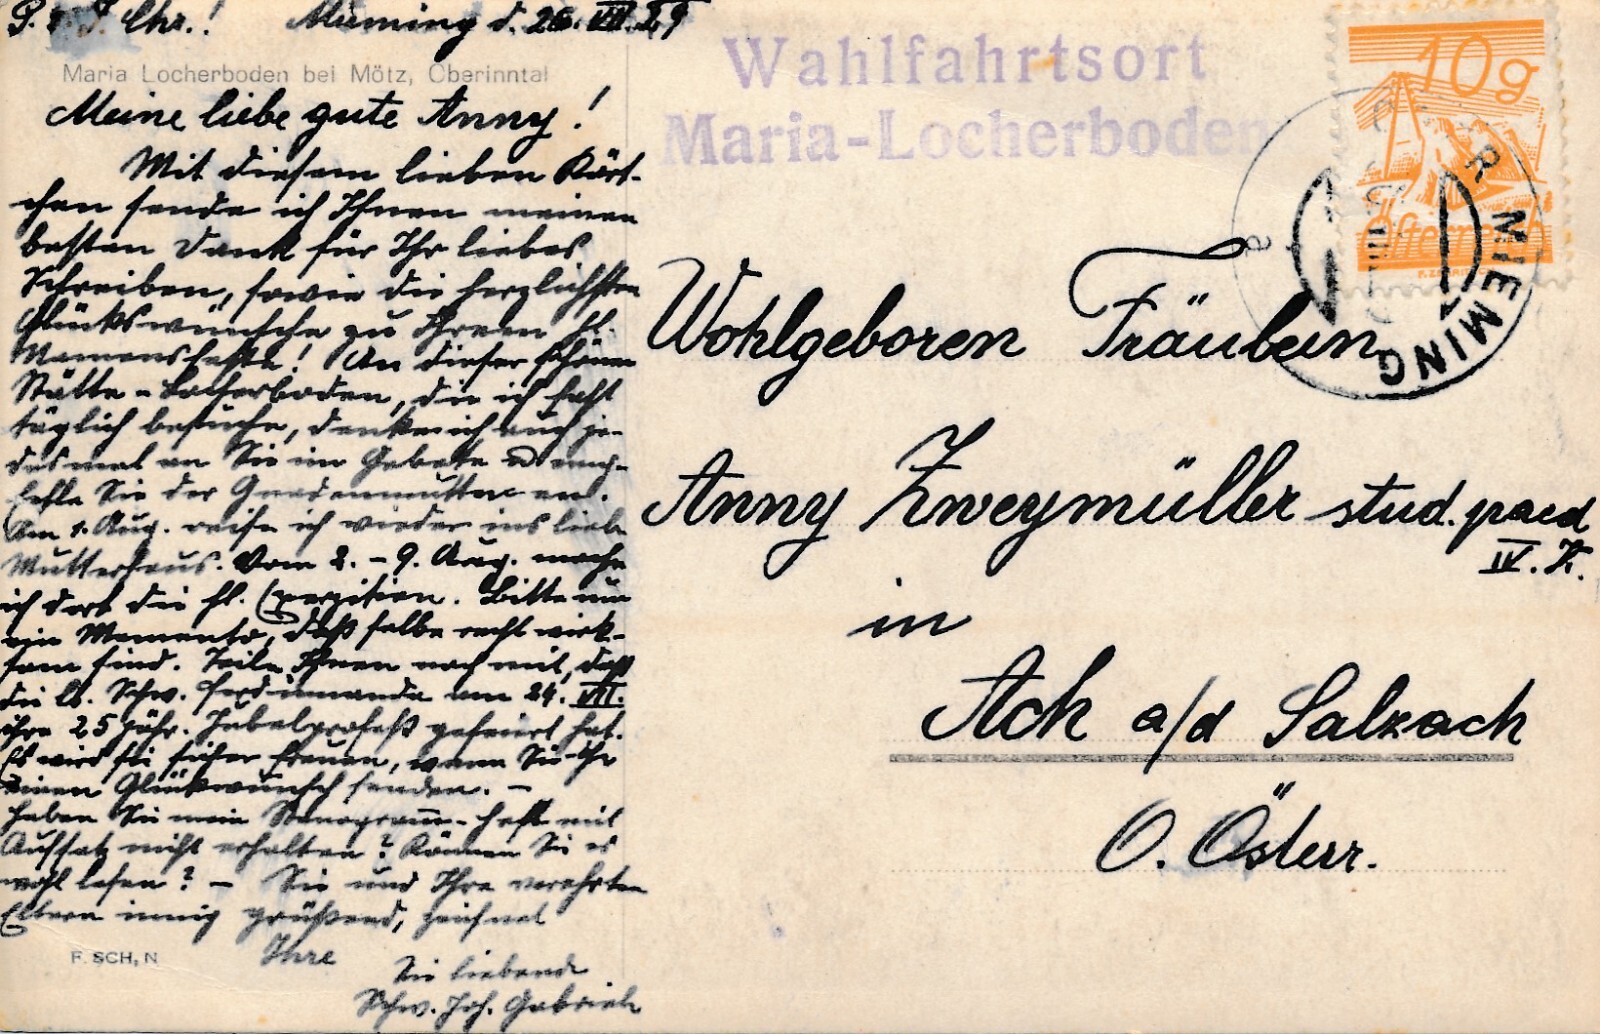 G. s. J. Chr.! Mieming d. 26. VII. 29
Maria Locherboden bei Mötz, Oberinntal
Meine liebe gute Anny!
Mit diesem lieben Kärt-
chen sende ich Ihnen meinen
besten Dank für Ihr liebes
Schreiben, sowie die herzlichsten
Glückswünsche zu Ihrem hl.
Namensfeste! An dieser schönen
Stätte - Locherboden, die ich fast
täglich besuche, denke ich auch je-
desmal an Sie im Gebete u. emp-
fehle Sie der Gnadenmutter an.
Am 1. Aug. reise ich wieder ins liebe
Mutterhaus. Vom 2. - 9. Aug. mache
ich dort die hl. Exerzitien. Bitte um
ein Memento, daß selbe recht wirk-
sam sind. Teile Ihnen noch mit, daß
die lb. Schw. Ferdinanda am 24. VII.
ihre 25 jähr. Jubelprofeß gefeiert hat.
Es wird sie sicher freuen, wenn Sie ihr
einen Glückwunsch senden. -
Haben Sie mein Stenogramm-Heft mit
Aufsatz nicht erhalten? Können Sie es
wohl lesen? - Sie und Ihre verehrten
Eltern innig grüßend, zeichnet
Ihre
Sie liebende
Schw. Joh. Gabriele
F. SCH, N
Wahlfahrtsort
Maria-Locherboden
10g
Österreich
MIEMING
Wohlgeboren Fräulein
Anny Zweymüller stud. paed
IV. K.
in
Ach a/d Salzach
O. Österr.